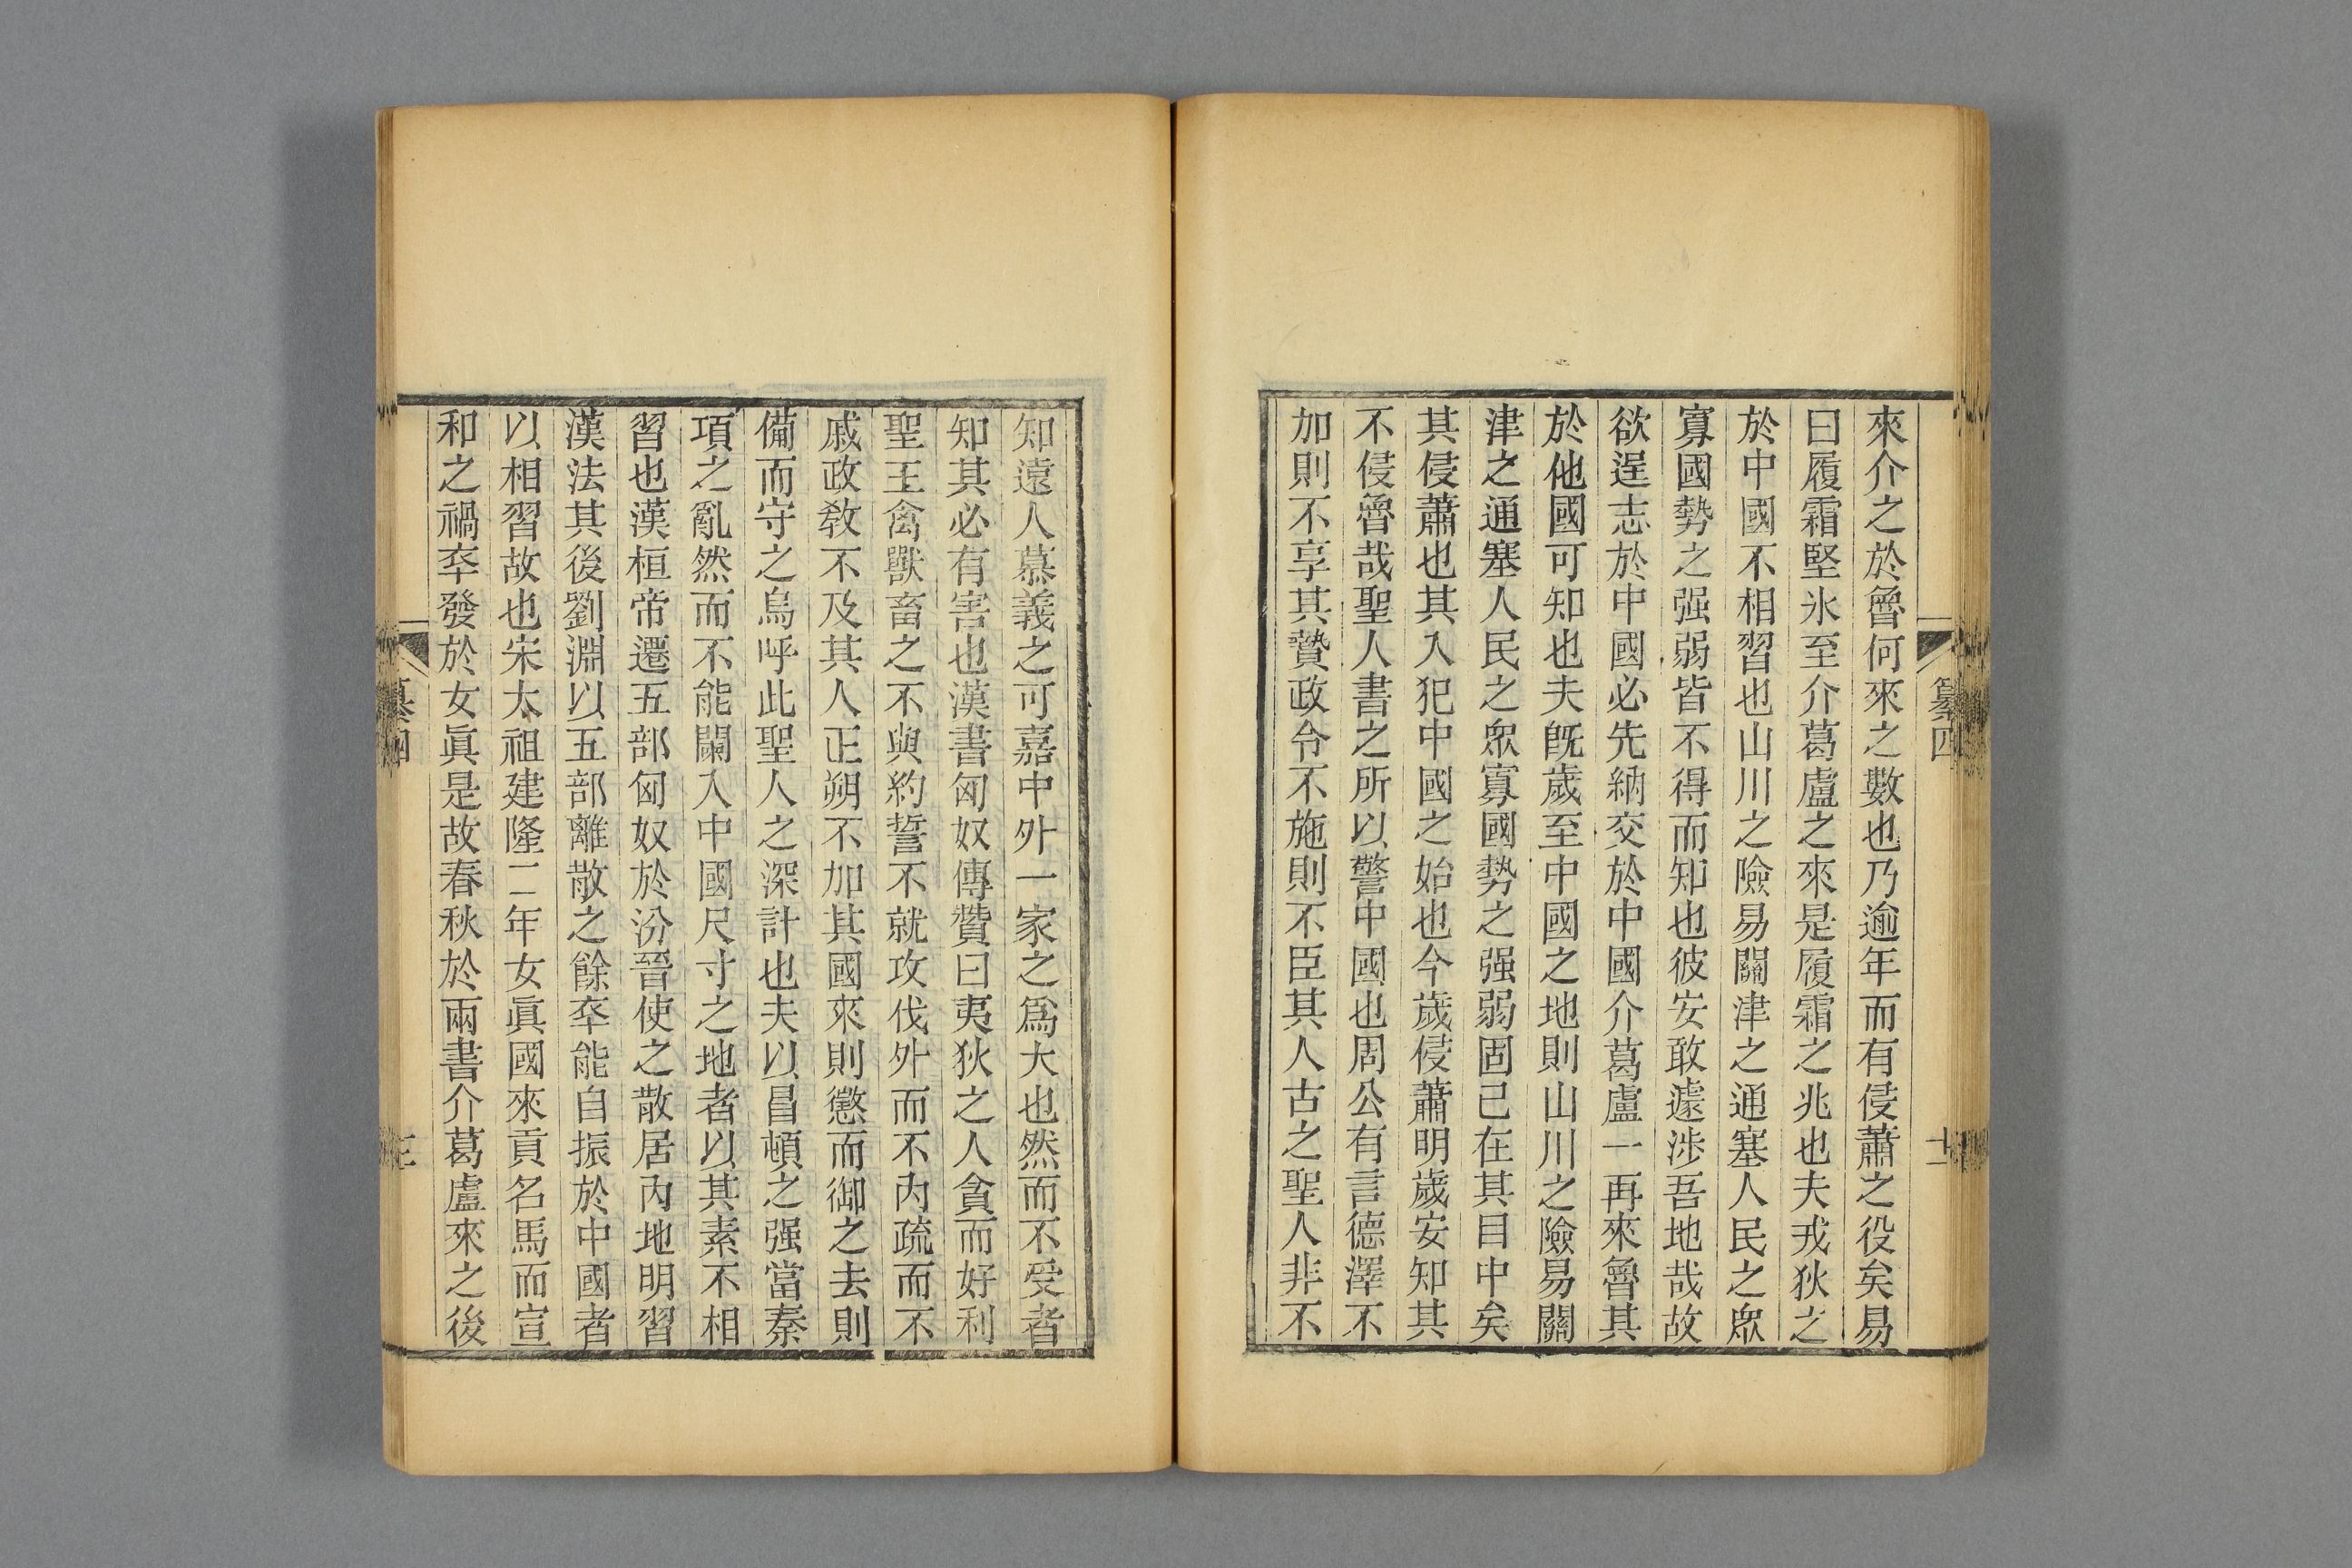 來介之於魯何來之數也乃逾年而有侵蕭之役矣易
曰履霜堅氷至介葛盧之來是履霜之兆也夫戎狄之
於中國不相習也山川之險易關津之通塞人民之眾
寡國勢之强弱皆不得而知也彼安敢遽涉吾地哉故
欲逞志於中國必先納交於中國介葛盧一再來魯其
於他國可知也夫旣歲至中國之地則山川之險易關
津之通塞人民之眾寡國勢之强弱固已在其目中矣
其侵蕭也其入犯中國之始也今歲侵蕭明歲安知其
不侵魯哉聖人書之所以警中國也周公有言德澤不
加則不享其贄政令不施則不臣其人古之聖人非不
纂四
十一
知遠人慕義之可嘉中外一家之爲大也然而不受者
知其必有害也漢書匈奴傳贊曰夷狄之人貪而好利
聖王禽獸畜之不與約誓不就攻伐外而不內疏而不
戚政敎不及其人正朔不加其國來則懲而御之去則
備而守之烏呼此聖人之深計也夫以昌頓之强當秦
項之亂然而不能闌入中國尺寸之地者以其素不相
習也漢桓帝遷五部匈奴於汾晉使之散居內地明習
漢法其後劉淵以五部離散之餘卒能自振於中國者
以相習故也宋太祖建隆二年女眞國來貢名馬而宣
和之禍卒發於女眞是故春秋於兩書介葛盧來之後